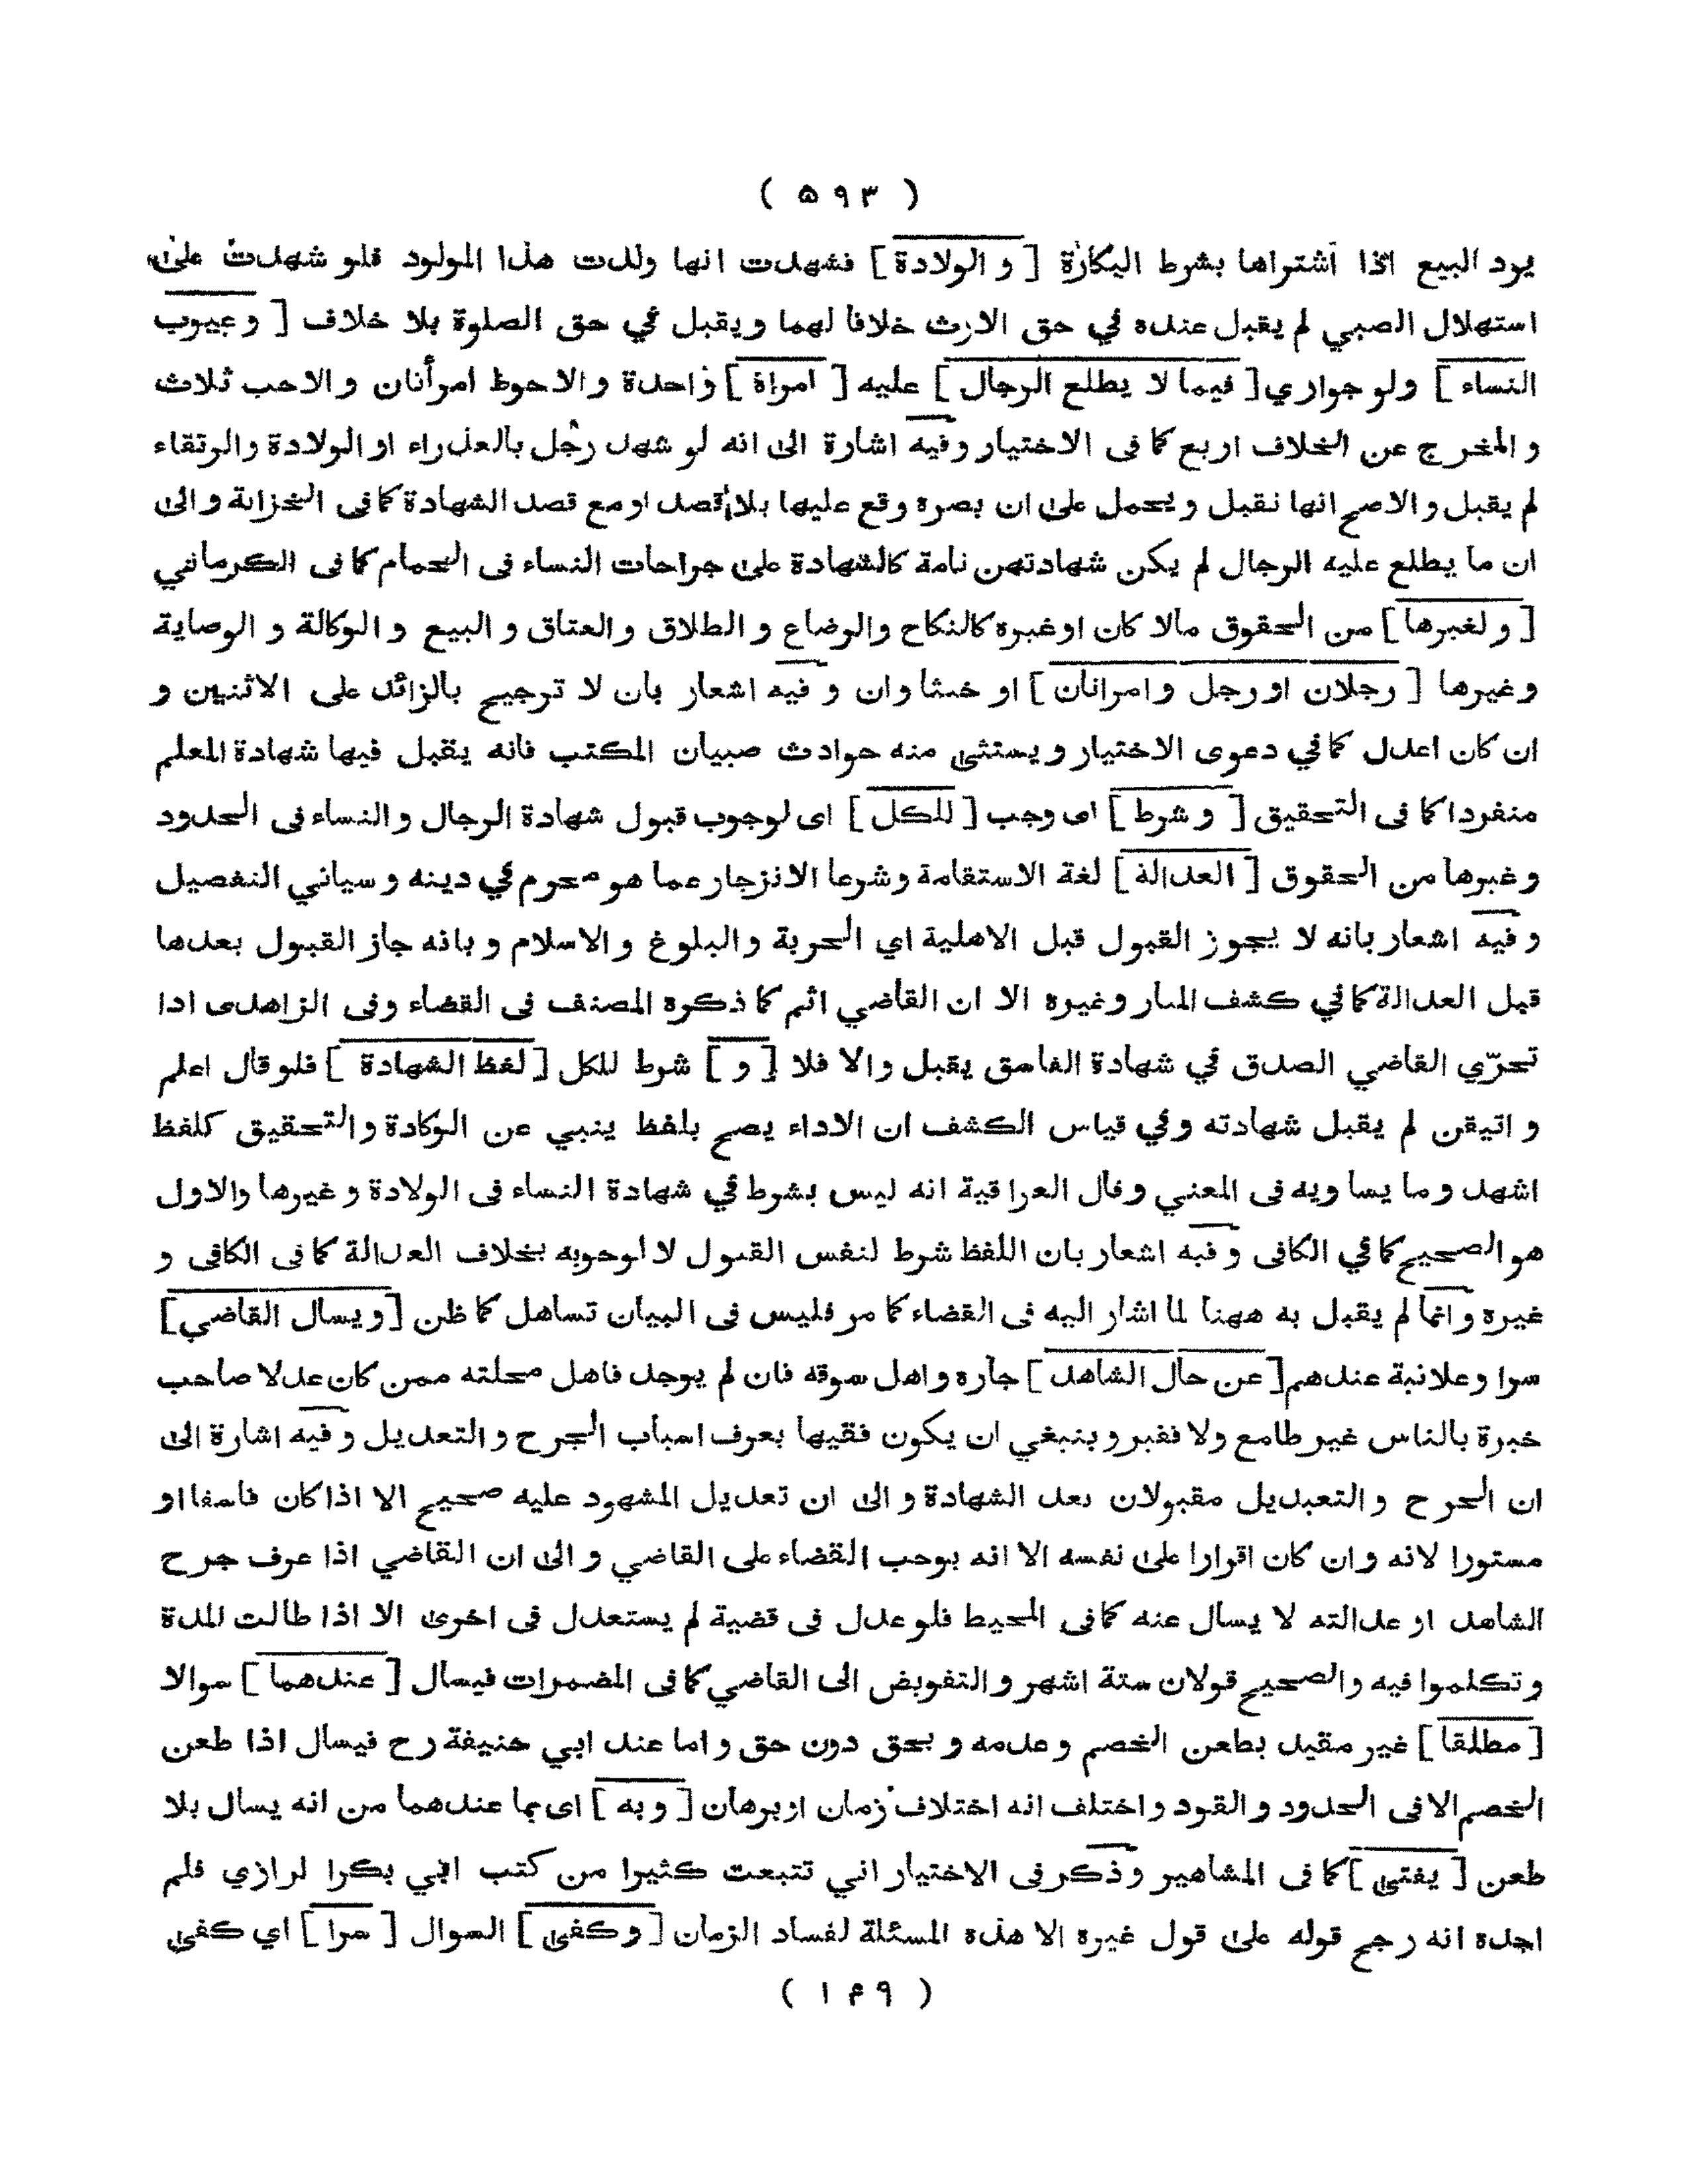 ( ٥٩٣ )
يرد البيع اذا اشتراها بشرط البكارة [ و الولادة ] فشهدت انها ولدت هذا المولود فلو شهدت على
استهلال الصبي لم يقبل عنده في حق الارث خلافا لهما و يقبل في حق الصلوة بلا خلاف [ و عيوب
النساء ] ولو جواري [ فيما لا يطلع الرجال ] عليه [ امراة ] واحدة و الاحوط امرأتان و الاحب ثلاث
و المخرج عن الخلاف اربع كما فى الاختيار و فيه اشارة الى انه لو شهد رجل بالعذراء او الولادة والرتقاء
لم يقبل و الاصح انها نقبل و يحمل على ان بصره وقع عليها بلا قصد او مع قصد الشهادة كما فى الخزانة و الى
ان ما يطلع عليه الرجال لم يكن شهادتهن تامة كالشهادة على جراحات النساء فى الحمام كما فى الكرماني
[ و لغيرها ] من الحقوق مالا كان او غيره كالنكاح والرضاع و الطلاق و العتاق و البيع و الوكالة و الوصاية
وغيرها [ رجلان او رجل و امراتان ] او خنثا وان و فيه اشعار بان لا ترجيح بالزائد على الاثنين و
ان كان اعدل كما في دعوى الاختيار و يستثنى منه حوادث صبيان المكتب فانه يقبل فيها شهادة المعلم
منفردا كما فى التحقيق [ و شرط ] اى وجب [ للكل ] اى لوجوب قبول شهادة الرجال و النساء فى الحدود
و غيرها من الحقوق [ العدالة ] لغة الاستقامة و شرعا الانزجار عما هو محرم في دينه و سياتي التفصيل
و فيه اشعار بانه لا يجوز القبول قبل الاهلية اي الحرية و البلوغ و الاسلام و بانه جاز القبول بعدها
قبل العدالة كما في كشف المنار و غيره الا ان القاضي اثم كما ذكره المصنف فى القضاء وفى الزاهدى اذا
تحرّي القاضي الصدق في شهادة الفاسق يقبل والا فلا [ و ] شرط للكل [ لفظ الشهادة ] فلو قال اعلم
و اتيقن لم يقبل شهادته و في قياس الكشف ان الاداء يصح بلفظ ينبي عن الوكادة و التحقيق كلفظ
اشهد و ما يساويه فى المعني و قال العراقية انه ليس بشرط في شهادة النساء فى الولادة و غيرها والاول
هو الصحيح كما في الكافى و فيه اشعار بان اللفظ شرط لنفس القبول لا لوجوبه بخلاف العدالة كما فى الكافى و
غيره و انما لم يقبل به ههنا لما اشار اليه فى القضاء كما مر فليس فى البيان تساهل كما ظن [ و يسال القاضي ]
سرا و علانية عندهم [ عن حال الشاهد ] جاره و اهل سوقه فان لم يوجد فاهل محلته ممن كان عدلا صاحب
خبرة بالناس غير طامع ولا فقير و ينبغي ان يكون فقيها يعرف اسباب الجرح و التعديل و فيه اشارة الى
ان الجرح و التعبديل مقبولان بعد الشهادة و الى ان تعديل المشهود عليه صحيح الا اذا كان فاسقا او
مستورا لانه و ان كان اقرارا على نفسه الا انه يوجب القضاء على القاضي و الى ان القاضي اذا عرف جرح
الشاهد او عدالته لا يسال عنه كما فى المحيط فلو عدل فى قضية لم يستعدل فى اخرى الا اذا طالت المدة
و تكلموا فيه والصحيح قولان ستة اشهر و التفويض الى القاضي كما فى المضمرات فيسال [ عندهما ] سوالا
[ مطلقا ] غير مقيد بطعن الخصم و عدمه و بحق دون حق و اما عند ابي حنيفة رح فيسال اذا طعن
الخصم الا فى الحدود و القود و اختلف انه اختلاف زمان او برهان [ و به ] اى بما عندهما من انه يسال بلا
طعن [ يفتى ] كما فى المشاهير و ذكر فى الاختيار اني تتبعت كثيرا من كتب ابي بكرا لرازي فلم
اجده انه رجح قوله على قول غيره الا هذه المسئلة لفساد الزمان [ و كفى ] السوال [ سرا ] اي كفى
( ١٤٩ )